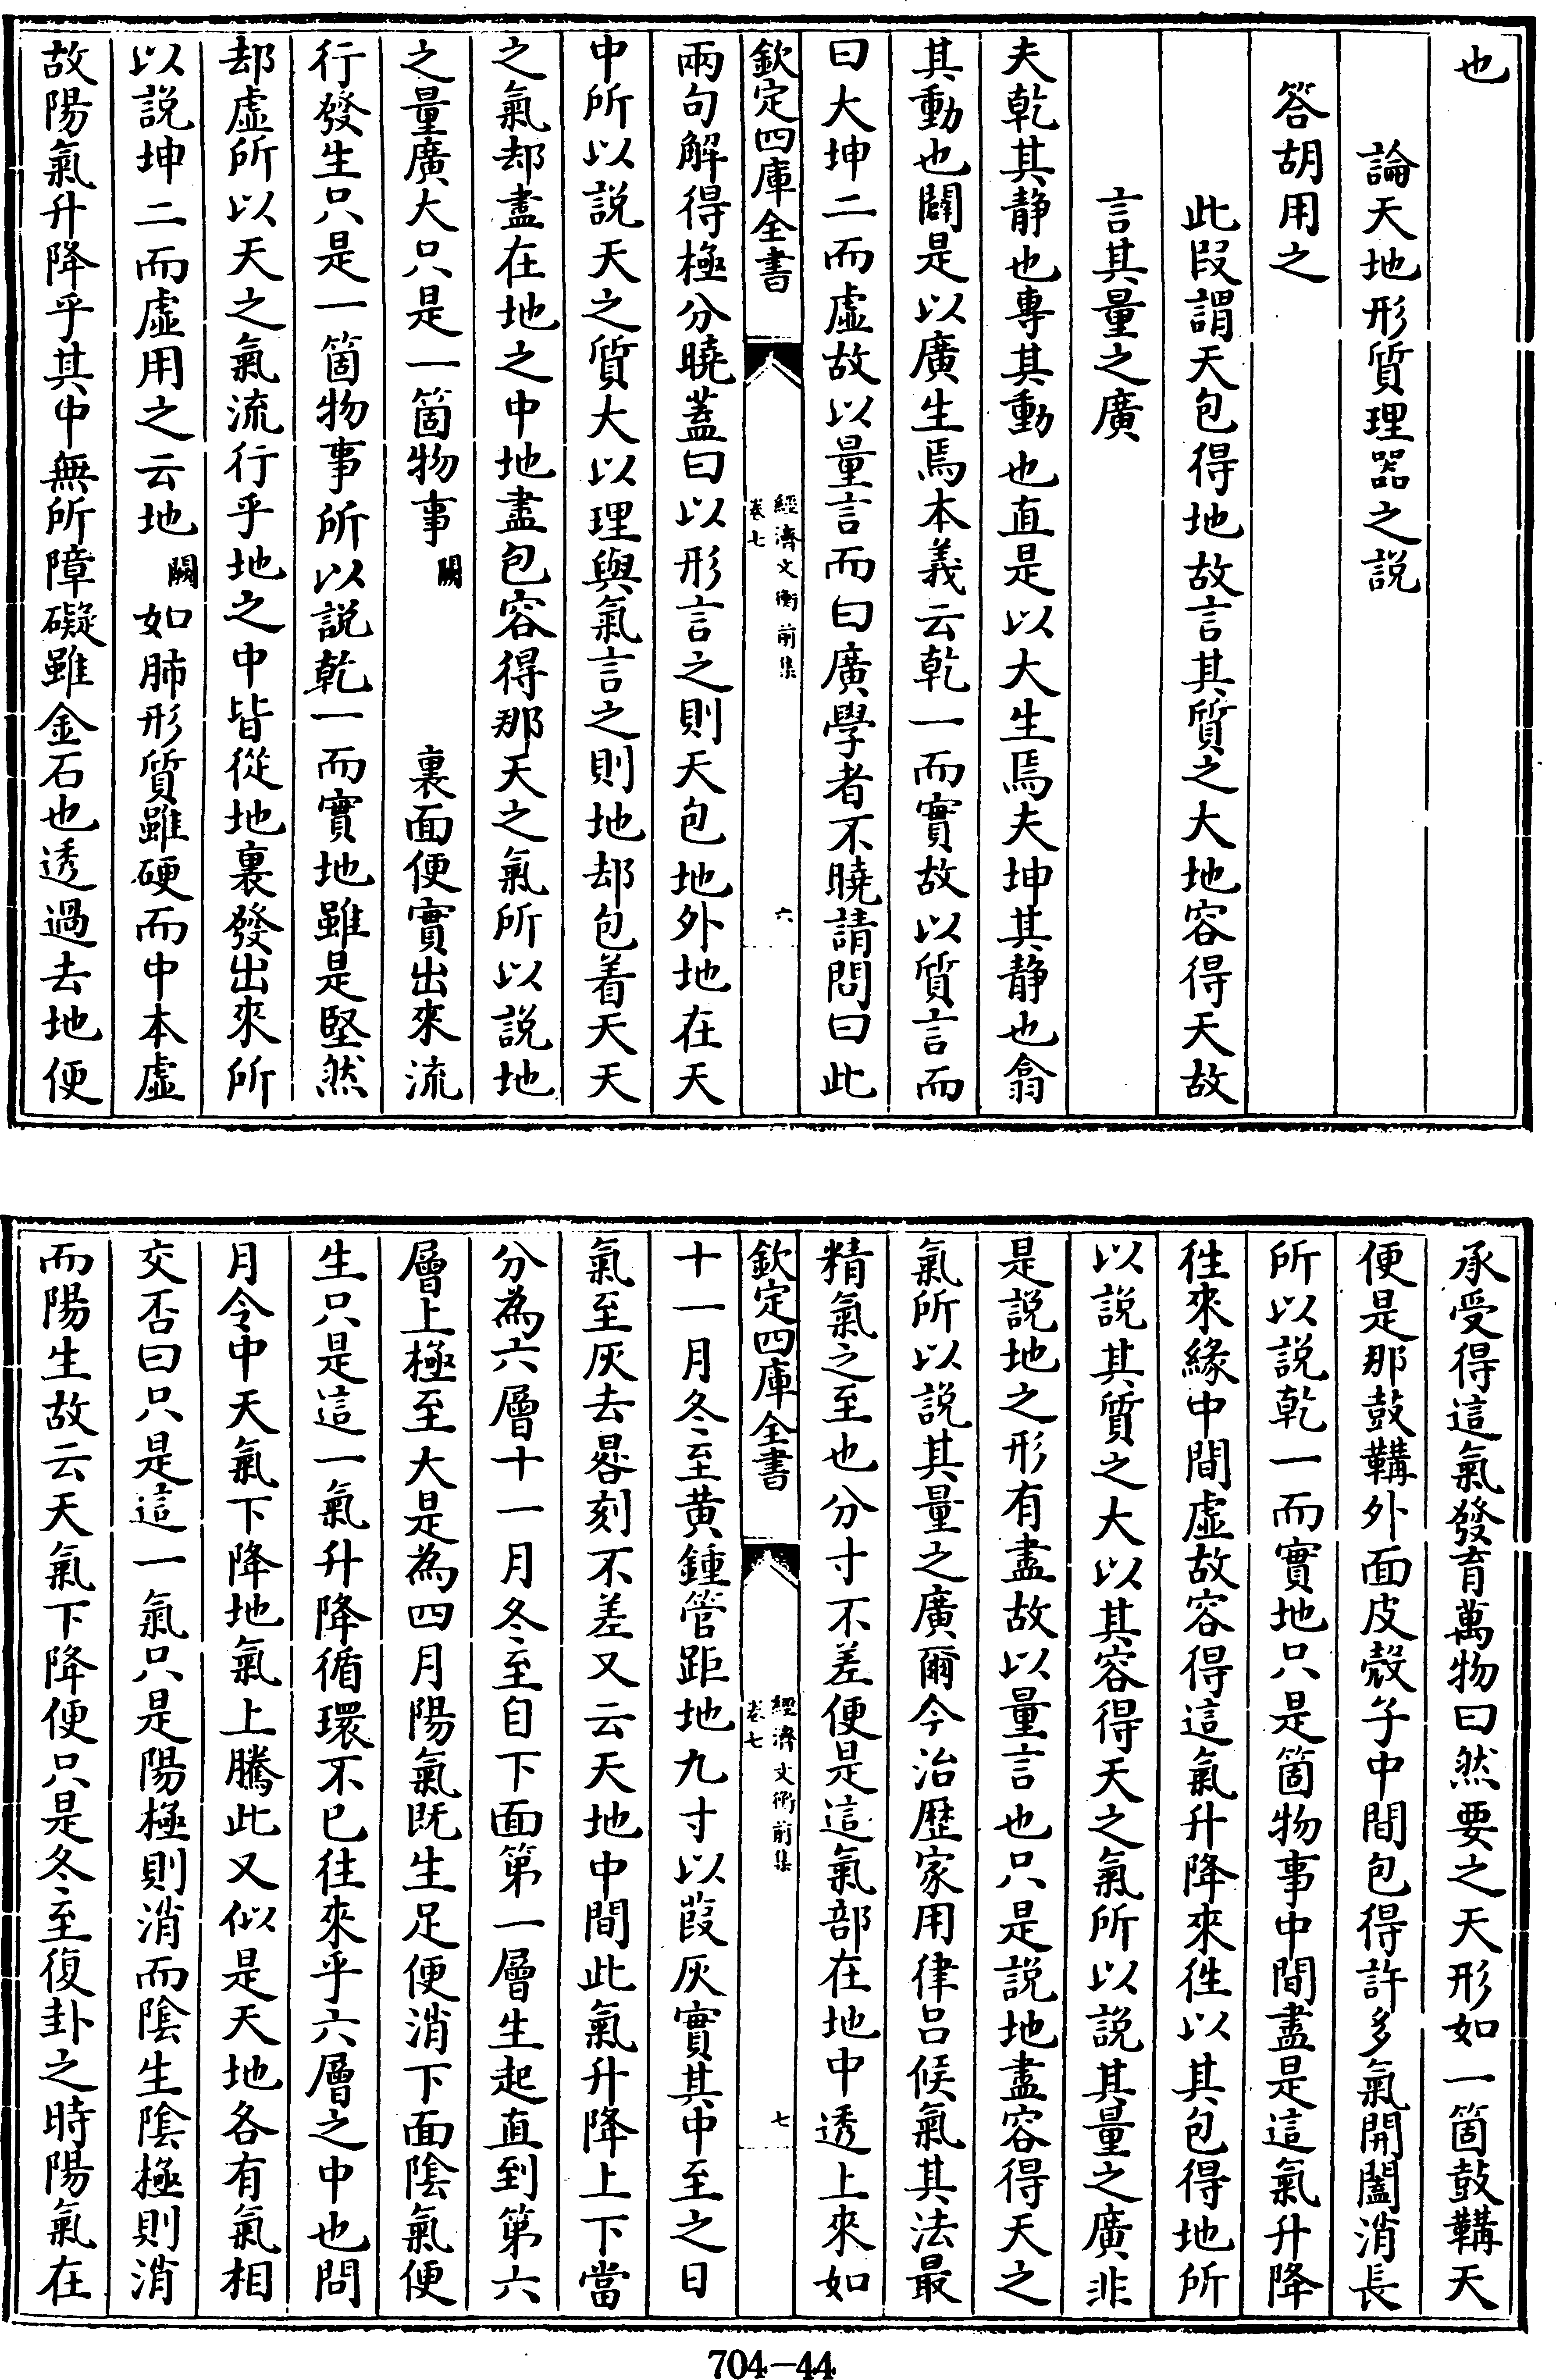 也
論天地形質理器之説
答胡用之
此段謂天包得地故言其質之大地容得天故
言其量之廣
夫乾其静也專其動也直是以大生焉夫坤其静也翕
其動也闢是以廣生焉本義云乾一而實故以質言而
曰大坤二而虛故以量言而曰廣學者不曉請問曰此
欽定四庫全書
經濟文衡前集
卷七
六
兩句解得極分曉蓋曰以形言之則天包地外地在天
中所以説天之質大以理與氣言之則地却包着天天
之氣却盡在地之中地盡包容得那天之氣所以説地
之量廣大只是一箇物事闕裏面便實出來流
行發生只是一箇物事所以説乾一而實地雖是堅然
却虛所以天之氣流行乎地之中皆從地裏發出來所
以説坤二而虛用之云地闕如肺形質雖硬而中本虛
故陽氣升降乎其中無所障礙雖金石也透過去地便
承受得這氣發育萬物曰然要之天形如一箇鼓鞲天
便是那鼓鞲外面皮殼子中間包得許多氣開闔消長
所以説乾一而實地只是箇物事中間盡是這氣升降
徃來緣中間虛故容得這氣升降來徃以其包得地所
以説其質之大以其容得天之氣所以説其量之廣非
是説地之形有盡故以量言也只是説地盡容得天之
氣所以説其量之廣爾今治歷家用律吕候氣其法最
精氣之至也分寸不差便是這氣部在地中透上來如
欽定四庫全書
經濟文衡前集
卷七
七
十一月冬至黄鍾管距地九寸以葭灰實其中至之日
氣至灰去晷刻不差又云天地中間此氣升降上下當
分為六層十一月冬至自下面第一層生起直到第六
層上極至大是為四月陽氣既生足便消下面陰氣便
生只是這一氣升降循環不已往來乎六層之中也問
月令中天氣下降地氣上騰此又似是天地各有氣相
交否曰只是這一氣只是陽極則消而陰生陰極則消
而陽生故云天氣下降便只是冬至復卦之時陽氣在
704-44